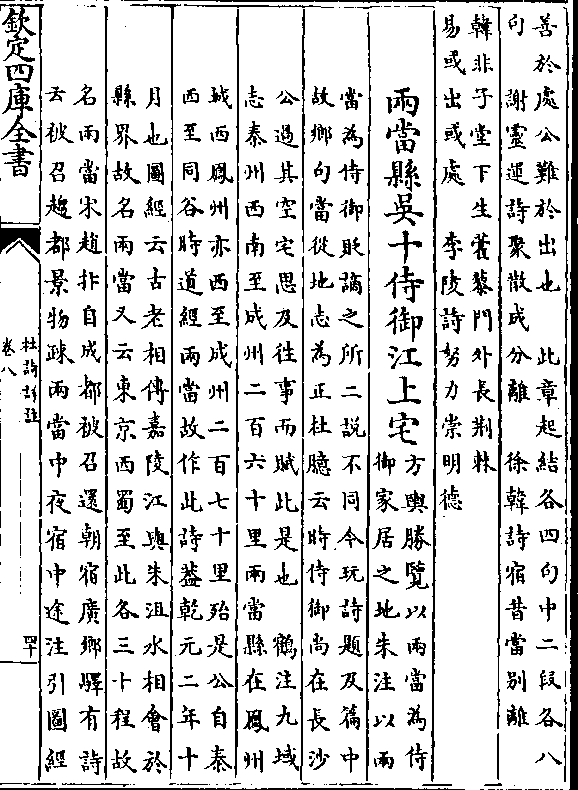 善於處公難於出也　此章起結各四句中二段各八
句　謝靈運詩聚散成分離　徐韓詩宿昔當別離
韓非子堂下生藿藜門外長荆棘
易或出或處　李陵詩努力崇明德
兩當縣吳十侍御江上宅
方輿勝覽以兩當為侍
御家居之地朱注以兩
當為侍御貶謫之所二說不同今玩詩題及篇中
故鄉句當從地志為正杜臆云時侍御尚在長沙
公過其空宅思及往事而賦此是也　鶴注九域
志秦州西南至成州二百六十里兩當縣在鳳州
城西鳳州亦西至成州二百七十里殆是公自秦
西至同谷時道經兩當故作此詩葢乾元二年十
月也圖經云古老相傳嘉陵江與朱沮水相會於
縣界故名兩當又云東京西蜀至此各三十程故
名兩當宋趙抃自成都被召還朝宿廣鄉驛有詩
云被召趍都景物踈兩當中夜宿中途注引圖經
欽定四庫全書
杜詩詳註
卷八
四十